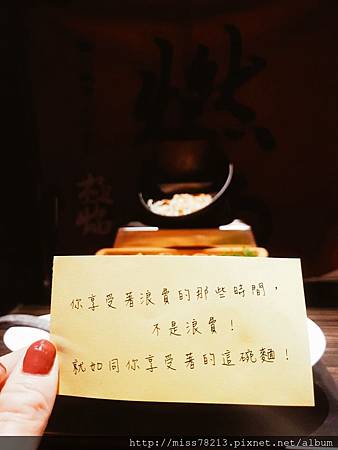 燃
你享受著浪費的那些時間，
不是浪費！
就如同你享受著的這碗麵！
http://miss78213.pixnet.net/album